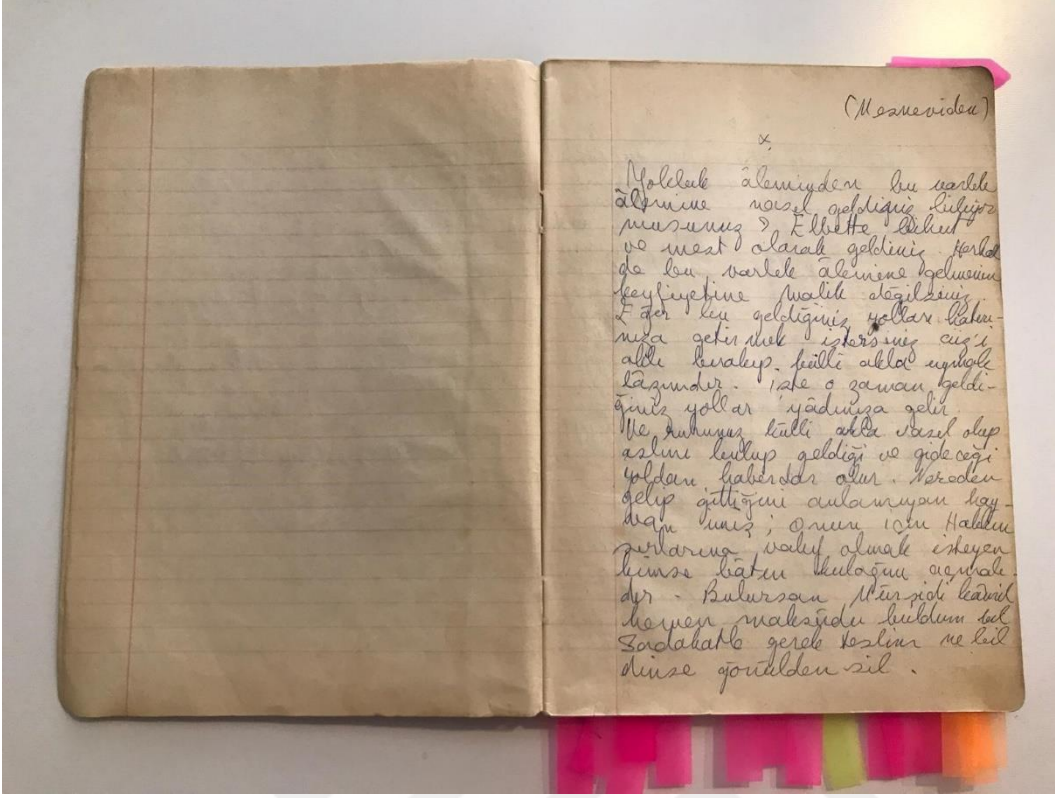 (Mesneviden)
x
Yokluk âleminden bu varlık
âlemine nasıl geldiğiniz biliyor
musunuz? Elbette bîhut
ve mest olarak geldiniz. Herhal
de bu varlık âlemine gelmenin
keyfiyetine malik değilsiniz.
Eğer bu geldiğiniz yolları hatırı-
nıza getirmek isterseniz cüz'i
aklı bırakıp. külli akla uymak
lâzımdır. işte o zaman geldi-
ğiniz yollar yâdınıza gelir.
Ve ruhunuz külli akla vasıl olup
aslını bulup geldiği ve gideceği
yoldan haberdar olur. Nereden
gelip gittiğini anlamıyan hay-
van imiş; onun için Hakkın
sırlarına vakıf olmak isteyen
kimse bâtın kulağını açmalı-
dır. Bulursan Mürşidi kâmil
hemen maksûdu buldum bil
Sadakatle gerek teslim ne bil
dinse gönülden sil.